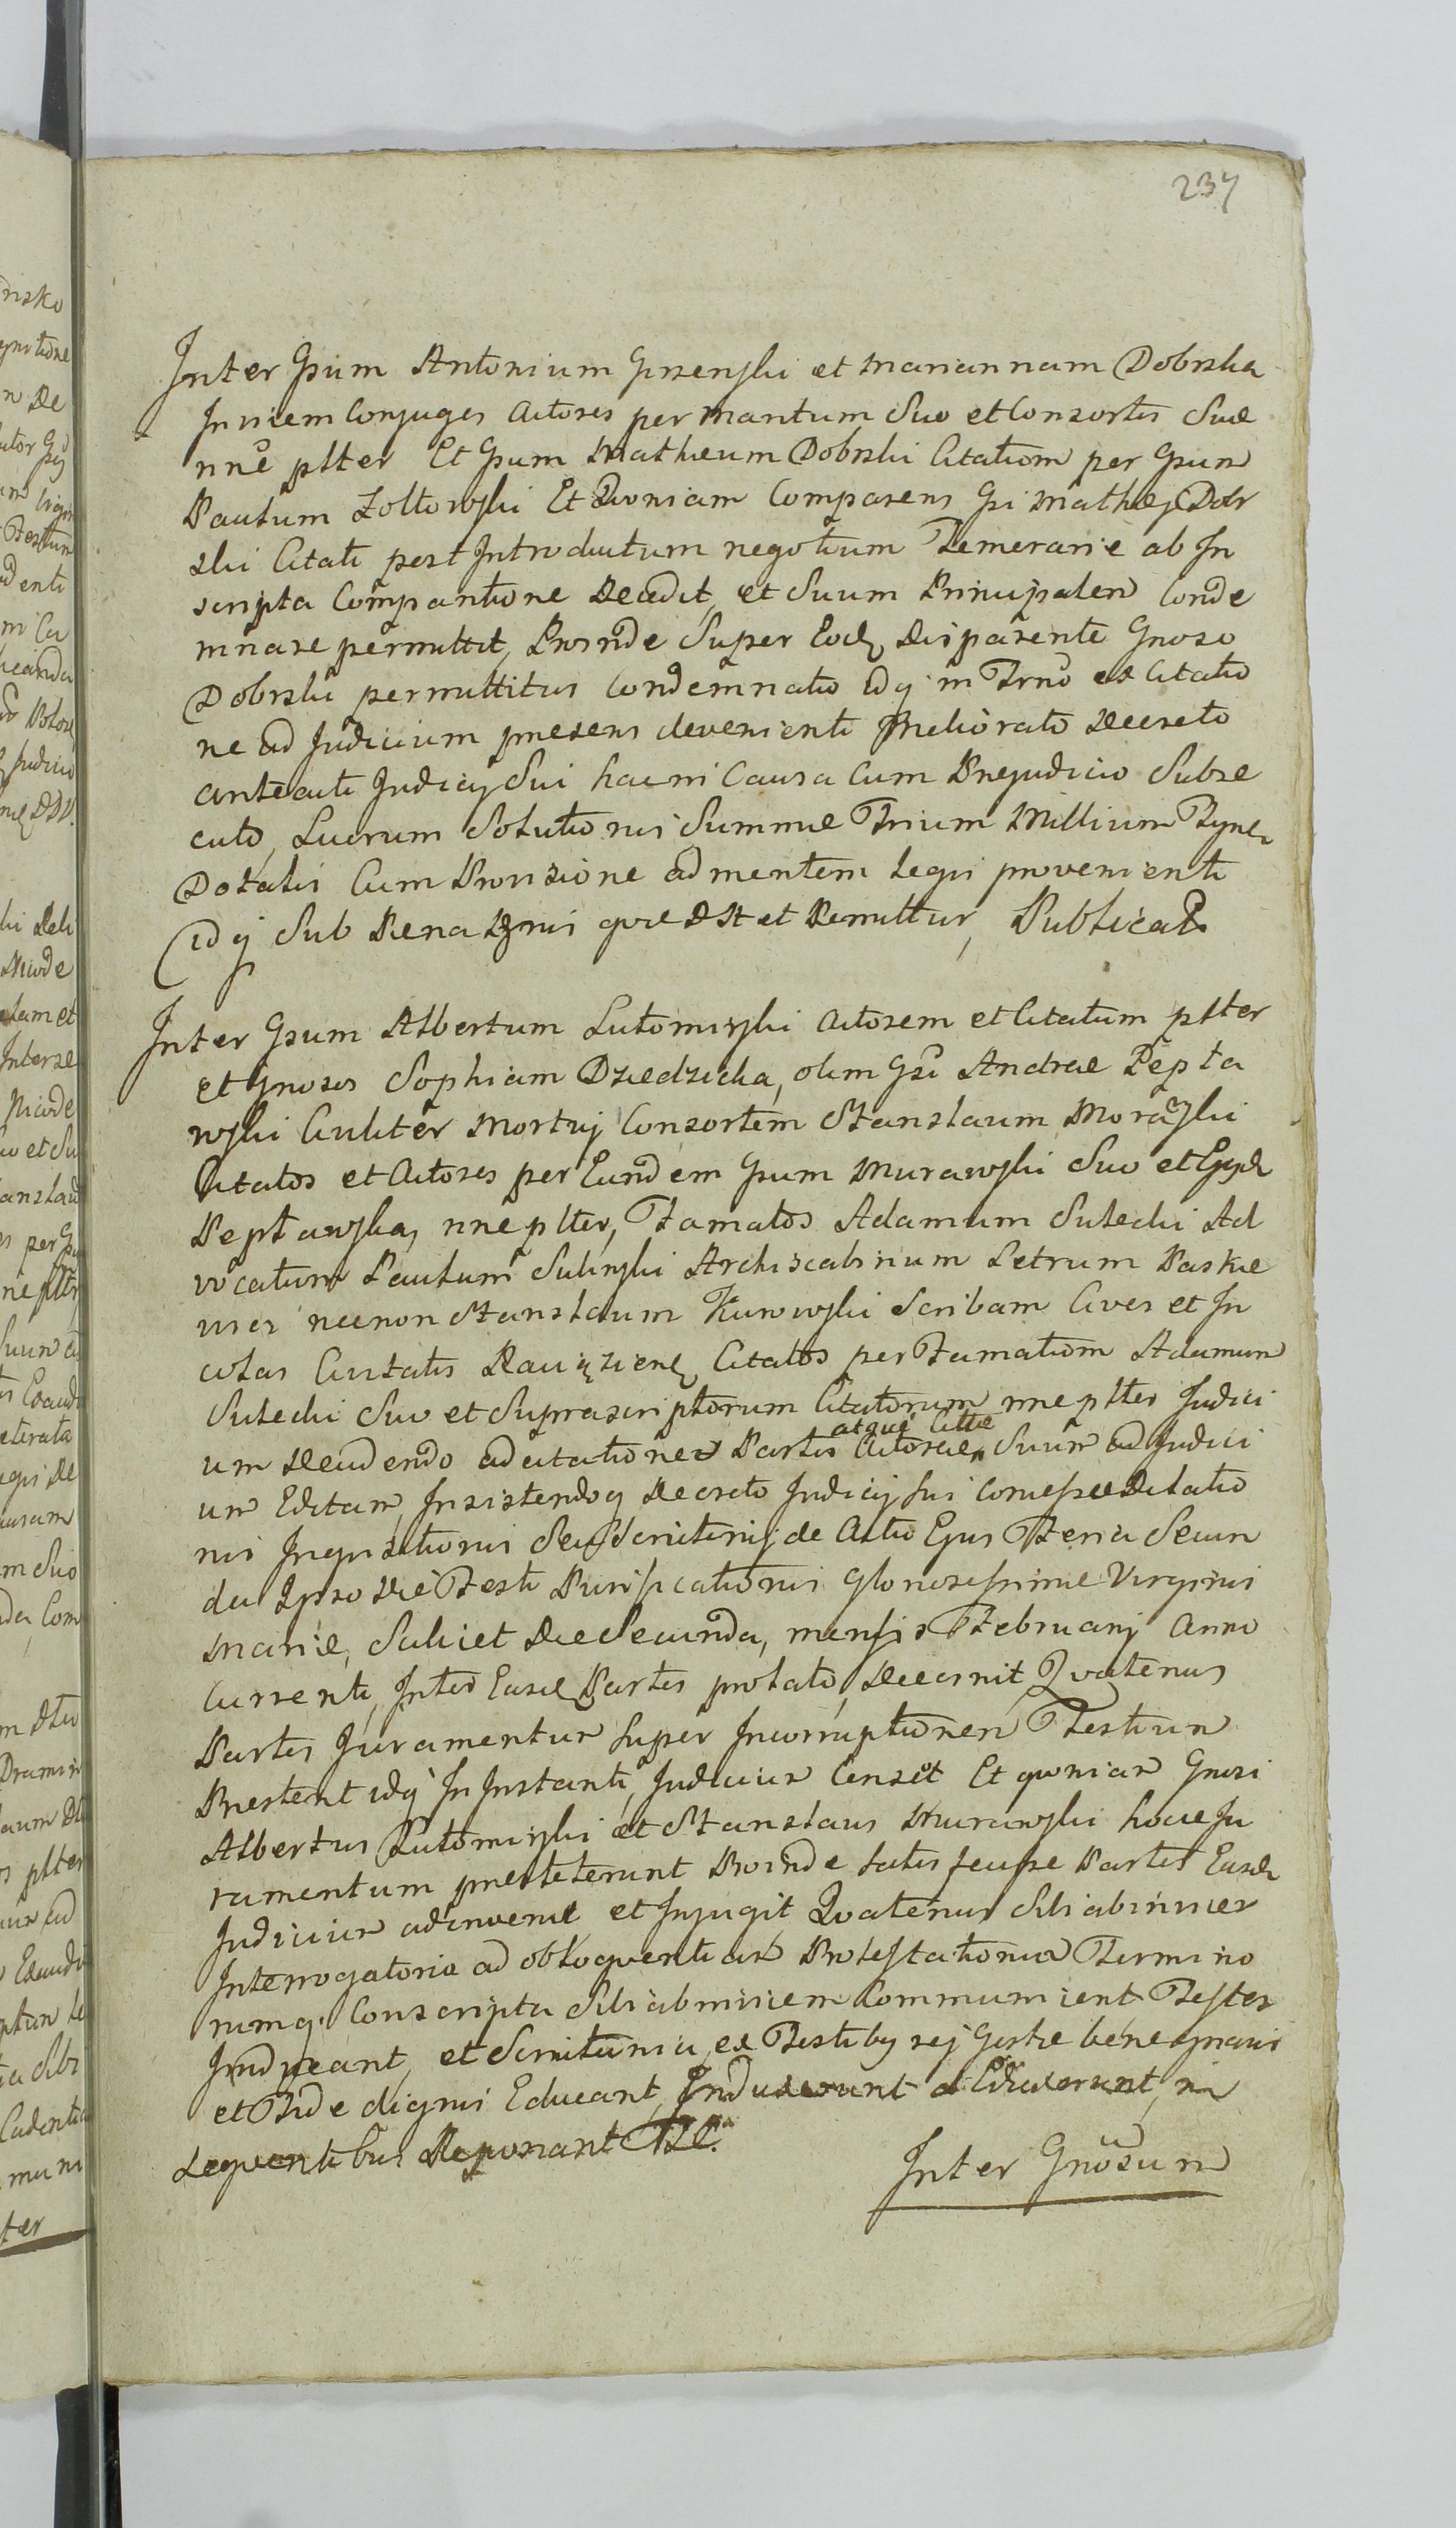 237
Inter Gsum Antonium Grzenski et Mariannam Dobrska
Invicem Conjuges Actores per Maritum Suo et Consortis Suae
nne plter Et Gsum Matheum Dobrski Citatum per Gsum
Paulum Zoltowski Et Quoniam Comparens Gsi Mathej Dobr
ski Citati post Introductum negotium Temerarie ab In
scripta Comparitione Decedit, et Suum Principalem Conde
mnare permittit, Proinde Super Eod Disparente Gnoso
Dobrski permittitur Condemnatio idq in Trno ex Citatio
ne ad Judicium praesens devenienti Meliorato Decreto
anteacti Judicij Sui hac in Causa Cum Praejudicio Subse
cuto, Lucrum Solutionis Summae Trium Millium Tynf
Dotalis Cum Provisione ad mentem Legis provenienti
idq Sub Paena Bnis quae Dst et Remittur, Publicat
Inter Gsum Albertum Lutomirski Actorem et Citatum plter
et Gnosos Sophiam Dziedzicka, olim Gsi Andreae Pepta
wski Civiliter Mortuj Consortem Stanslaum Morawski
Citatos et Actores per Eundem Gsum Murawski Suo et Gsae
Peptawska, nne plter, Famatos Adamum Sulecki Ad
vocatum Paulum Sulinski Archiscabinum Petrum Paskie
wicz necnon Stanslaum Kurowski Scribam Cives et In
colas Civitatis Raciązien Citatos per Famatum Adamum
Sulecki Suo et Suprascriptorum Citatorum nne plter Judici
um Decidendo ad citationes Partis Actoreae atque Cittae Suum ad Judici
um Editam, Insistendoq Decreto Judicij Sui Comessae Ditatio
nis Inquisitionis Seu Scrutinij de Actu Ejus Feria Secun
da Ipso Die Festi Purificationis Gloriosissimae Virginis
Mariae, Scilicet Die Secunda, mensis Februarij Anno
Currenti, Inter Easd Partes prolato, Decernit Quatenus
Partes Juramentum Super Incorruptionem Testium
Praestent idq In Instanti, Judicium Censet Et quoniam Gnosi
Albertus Lutomirski et Stanslaus Murawski hocce Ju
ramentum praestiterunt Proinde Satis fecisse Partes Easd
Judicium adinvenit et Injugit Quatenus Sibi abinvicem
Interrogatoria ad obloquentiam Protestationum Termino
rumq Conscripta Sibi abinvicem Communicent Testes
Inducant, et Scrutinia, ex Testibus rej Gestae bene gnaris
et Fide dignis Educant, Induxerunt Eduxerunt, in
Sequentibus Deponant
Inter Gnosum